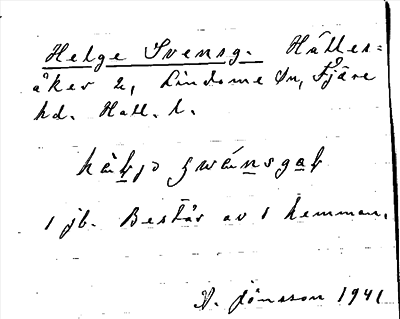 Helge Svensg. Hälles=
åker 2, Lindome sn, Fjäre
hd. Hall. l.
1 jb. Består av 1 hemman.
A. Jönsson 1941